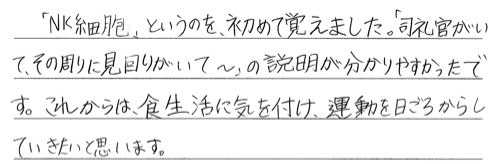 「NK細胞」というのを、初めて覚えました。「司礼官がい
て、その周りに見回りがいて～」の説明が分かりやすかったで
す。これからは、食生活に気を付け、運動を日ごろからし
ていきたいと思います。